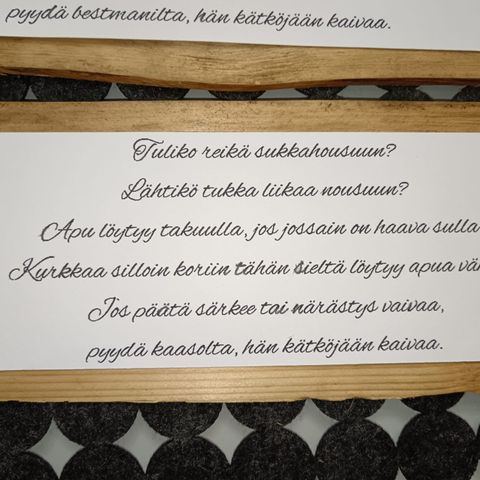 pyydä bestmanilta, hän kätköjään kaivaa.
Tuliko reikä sukkahousuun?
Lähtikö tukka liikaa nousuun?
Apu löytyy takuulla, jos jossain on haava sulla
Kurkkaa silloin koriin tähän sieltä löytyy apua
Jos päätä särkee tai närästys vaivaa,
pyydä kaasolta, hän kätköjään kaivaa.